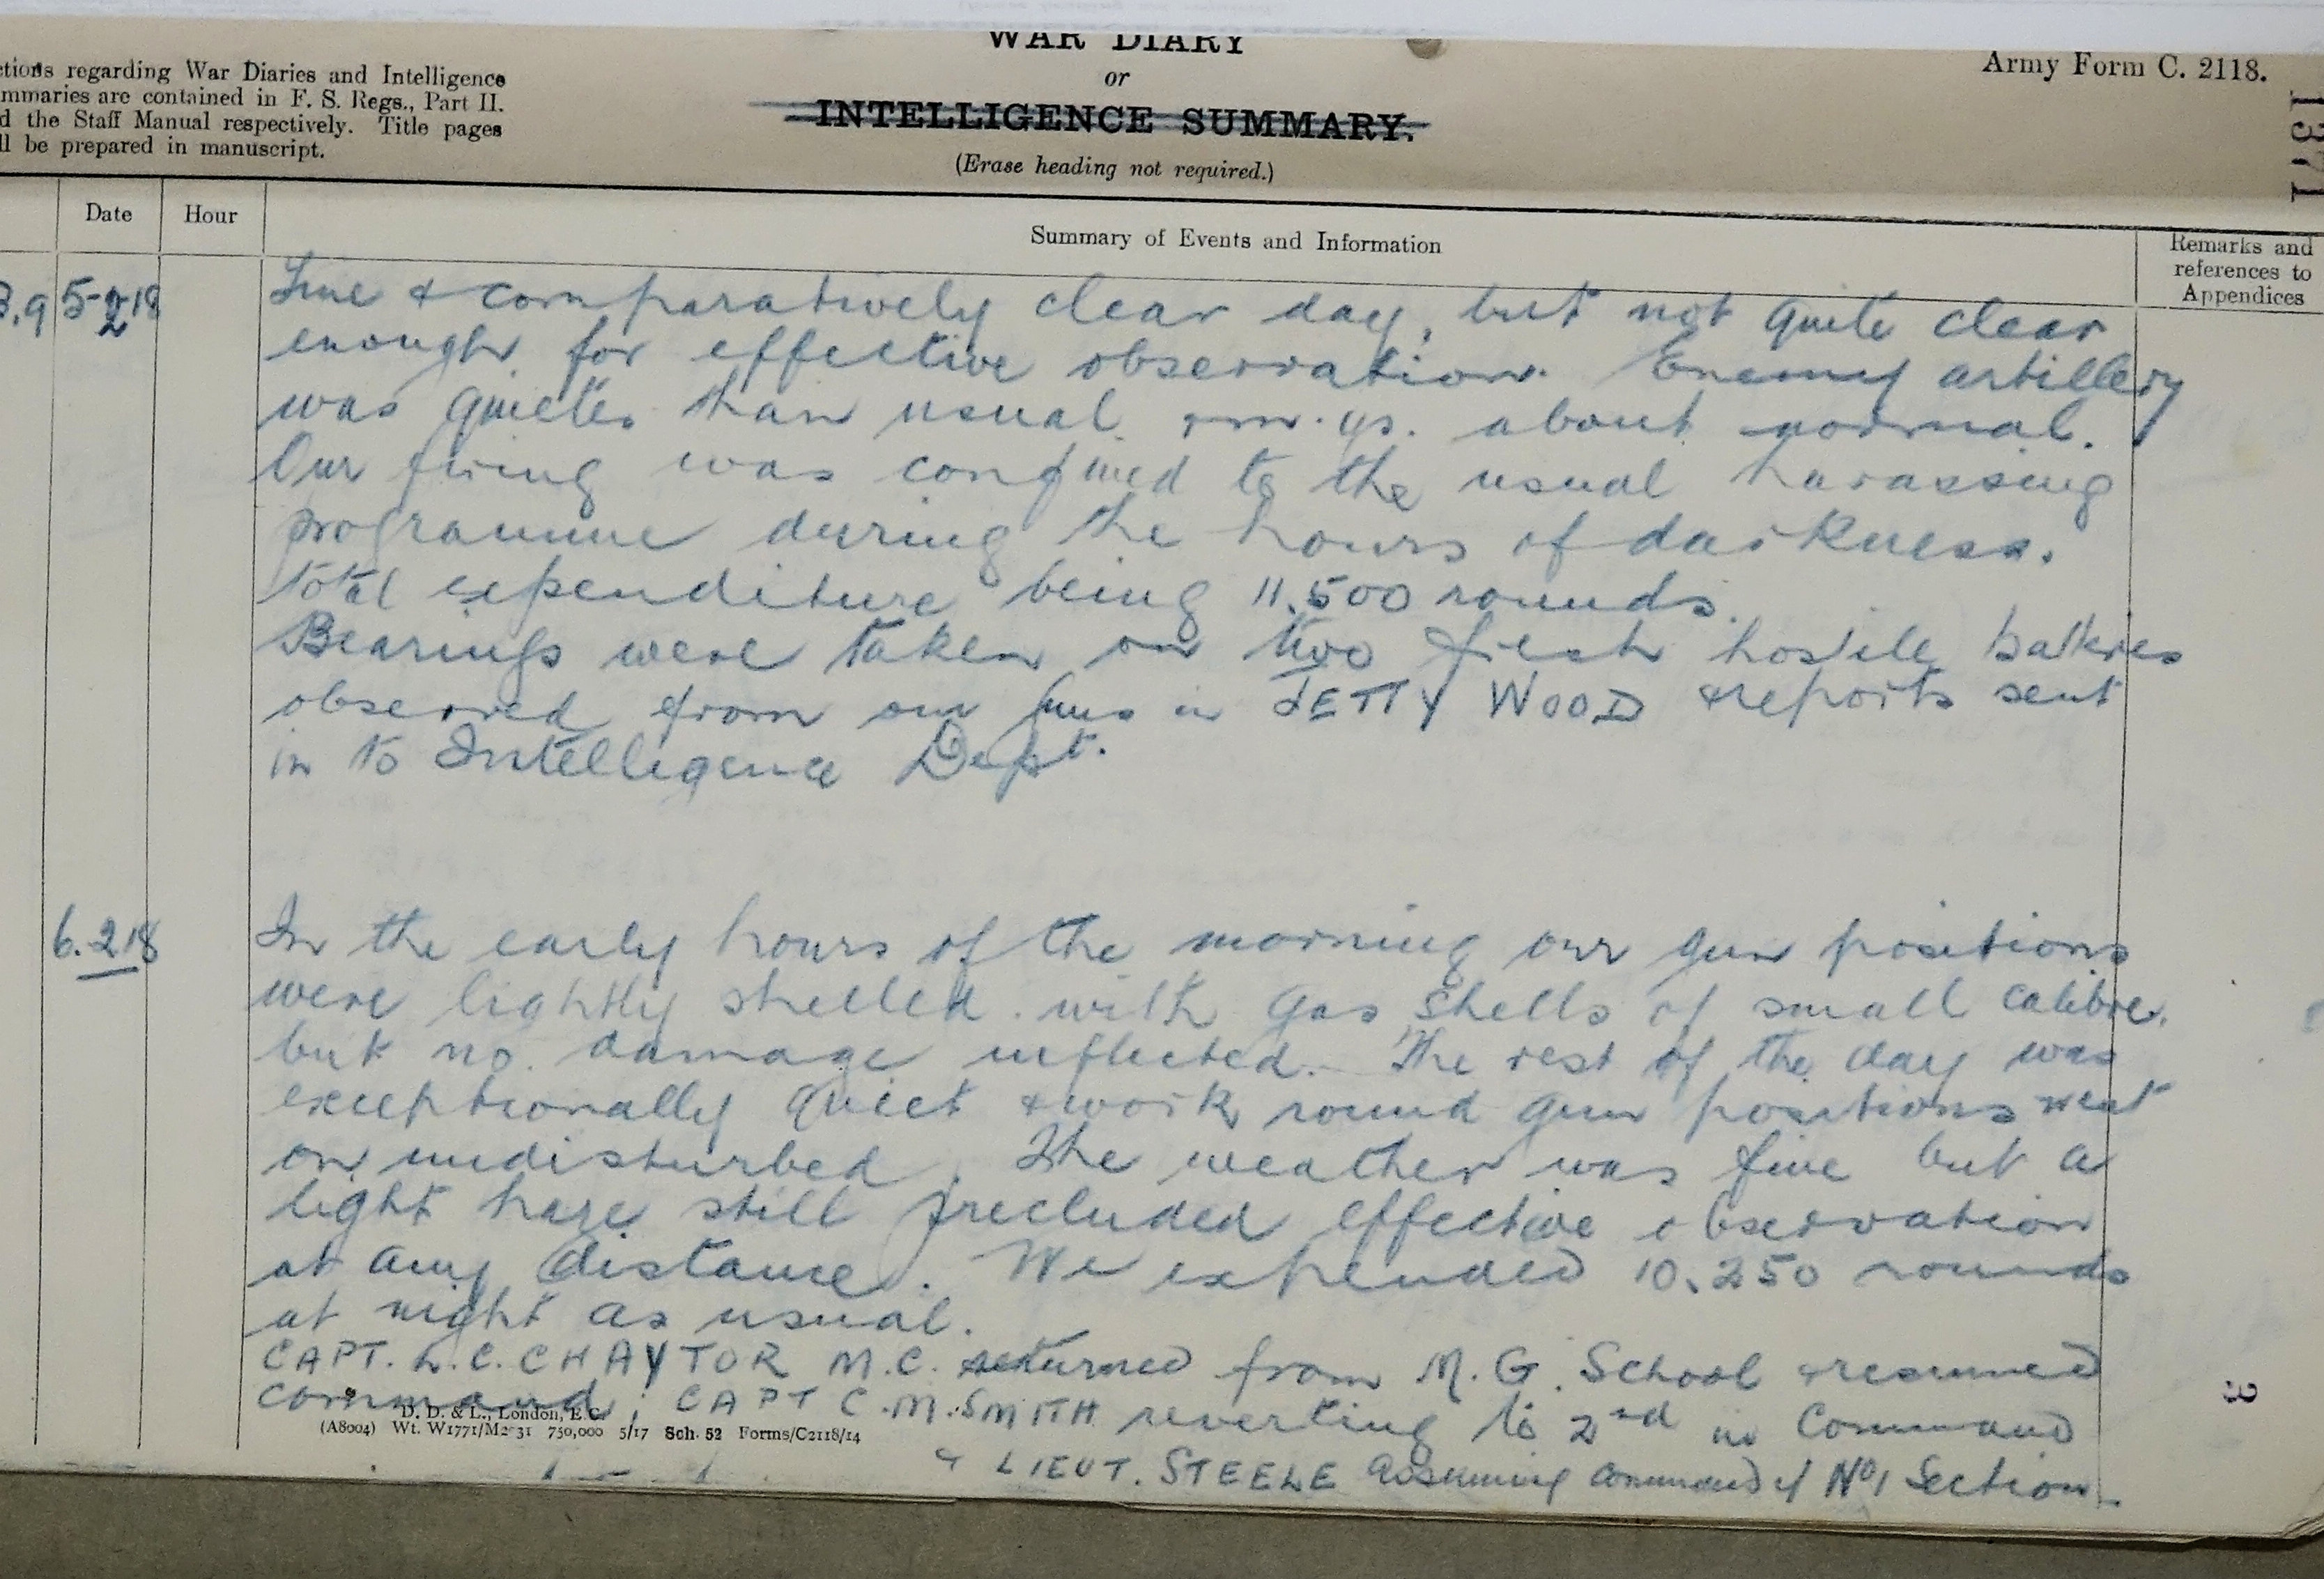 WAR DIARY
or
INTELLIGENCE SUMMARY.
(Erase heading not required.)
Army Form C. 2118.
ctions regarding War Diaries and Intelligence
mmaries are contained in F. S. Regs., Part II.
d the Staff Manual respectively. Title pages
ll be prepared in manuscript.
1371
Date
Hour
Summary of Events and Information
Remarks and
references to
Appendices
3.9 5-2 18
Fine & comparatively clear day, but not quite clear
enough for effective observation. Enemy artillery
was quieter than usual m.gs. about normal.
Our firing was confined to the usual harassing
programme during the hours of darkness.
total expenditure being 11.500 rounds.
Bearings were taken on two fresh hostile batteries
observed from our guns in JETTY WOOD & reports sent
in to Intelligence Dept.
6.2 18
In the early hours of the morning our gun positions
were lightly shelled with gas shells of small calibre.
but no damage inflicted. The rest of the day was
exceptionally quiet & work round gun positions went
on undisturbed. The weather was fine but a
light haze still precluded effective observation
at any distance. We expended 10.250 rounds
at night as usual.
CAPT. L.C. CHAYTOR M.C. returned from M.G. School & resumed
command; CAPT C.M. SMITH reverting to 2nd in Command
& LIEUT. STEELE assuming command of No 1 Section.
D. D. & L., London, E.C.
(A8004) Wt. W1771/M2 31 750,000 5/17 Sch. 52 Forms/C2118/14
3